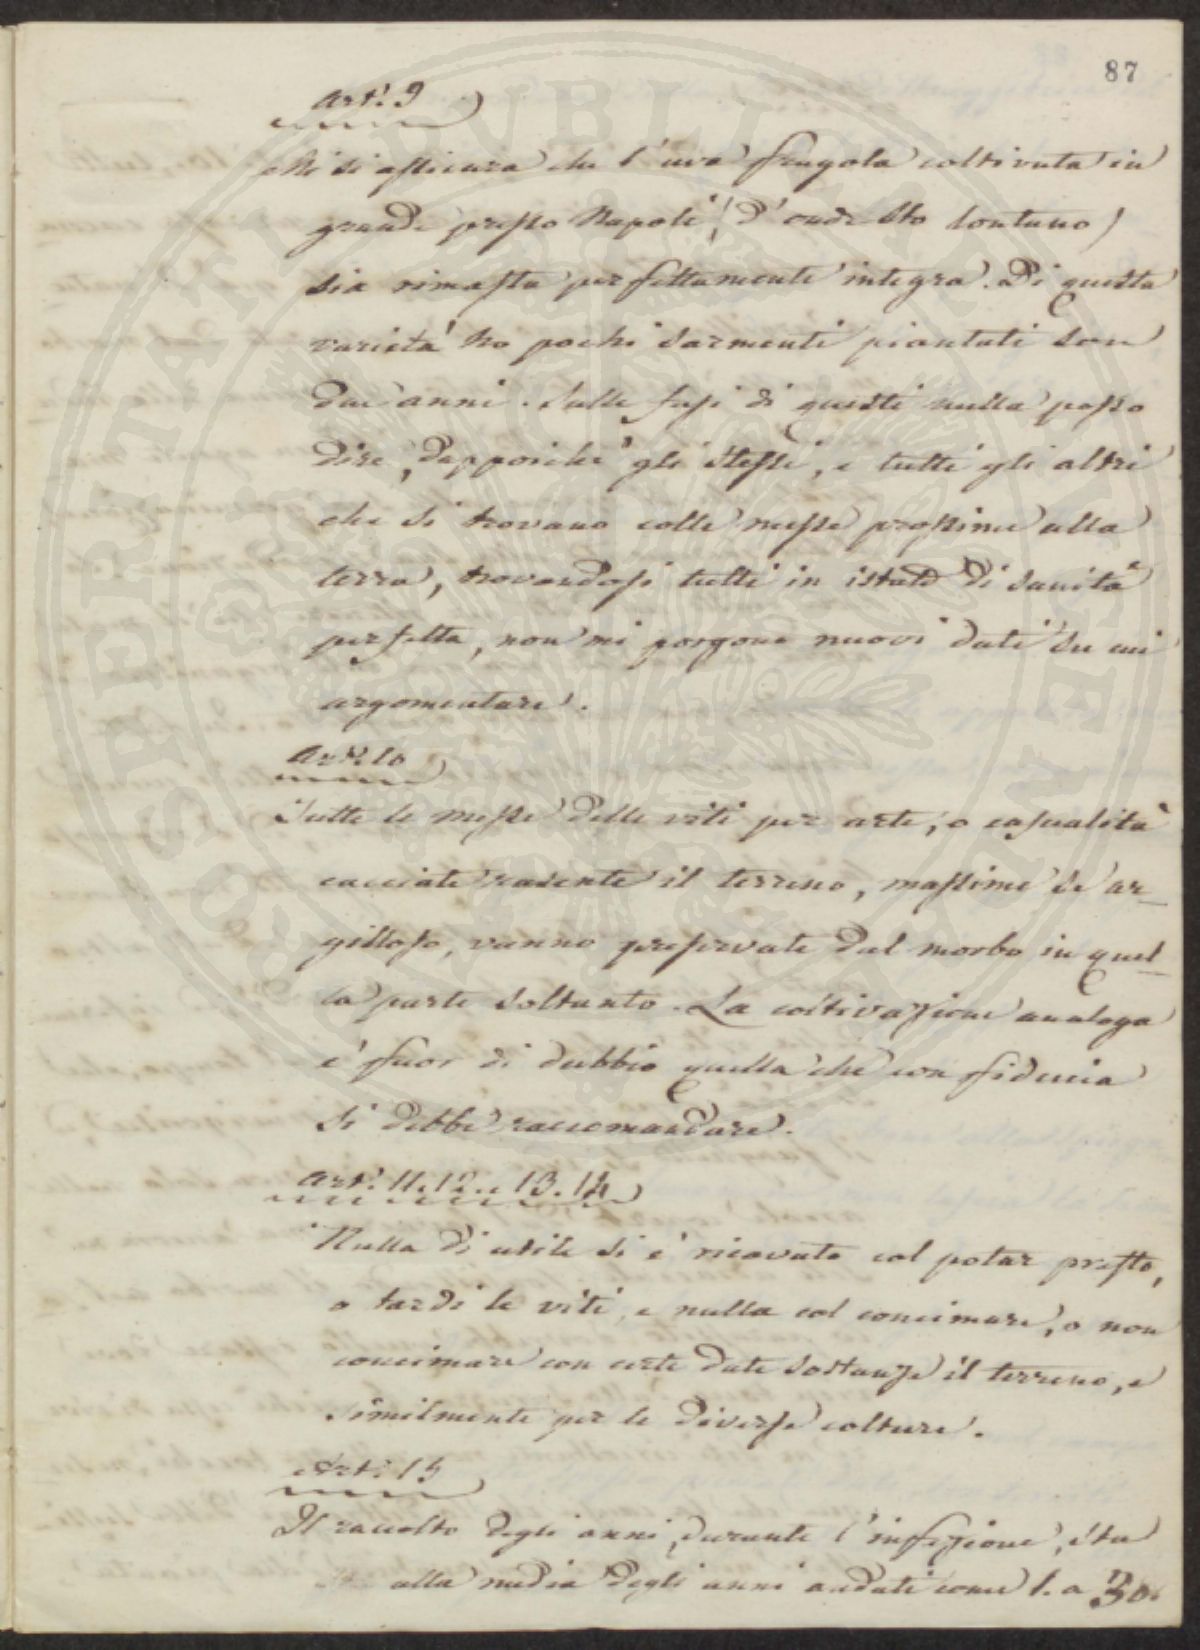 87
Art.° 9
Mi si assicura che l'uva fragola coltivata in
grande presso Napoli (d'onde sto lontano)
sia rimasta perfettamente integra. Di questa
varietà ho pochi sarmenti piantati son
due anni. Sulle fasi di questi nulla posso
dire, dappoichè gli stessi, e tutti gli altri
che si trovano colle messe prossime alla
terra, trovandosi tutti in istato di sanità
perfetta, non mi porgono nuovi dati su cui
argomentare.
Art.° 10
Tutte le messe delle viti per arte, o casualità
cacciate radente il terreno, massime se ar-
gilloso, vanno preservate dal morbo in quel-
la parte soltanto. La coltivazione analoga
è fuor di dubbio quella che con fiducia
si debbe raccomandare.
Art.° 11. 12. e 13. 14
Nulla di utile si è ricavato col potar presto,
o tardi le viti, e nulla col concimare, o non
concimare con certe date sostanze il terreno, e
similmente per le diverse colture.
Art.° 15
Il raccolto degli anni, durante l'infezione, sta
alla media degli anni andati come 1. a 30.
PROSPERITATI PVBLICAE AVGENDAE